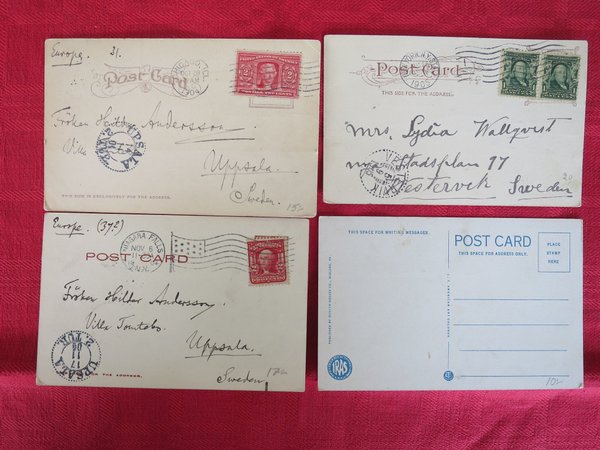 Europe. 21.
Post Card
1904
2 2
Fröken Hildur Andersson
Villa
Uppsala
Sweden
UPSALA
THIS SIDE IS EXCLUSIVELY FOR THE ADDRESS.
15:-
Post Card
THIS SIDE FOR THE ADDRESS.
Mrs. Lydia Wallqvist
Stadsplan 17
Westervik
Sweden
20
Europe. (372)
NIAGARA FALLS
NOV 6
POST CARD
Fröken Hilder Andersson,
Villa Tomtebo,
Uppsala
Sweden
2. TUR
UPSALA
THIS SPACE FOR WRITING MESSAGES.
POST CARD
THIS SPACE FOR ADDRESS ONLY.
PLACE
STAMP
HERE
10:-